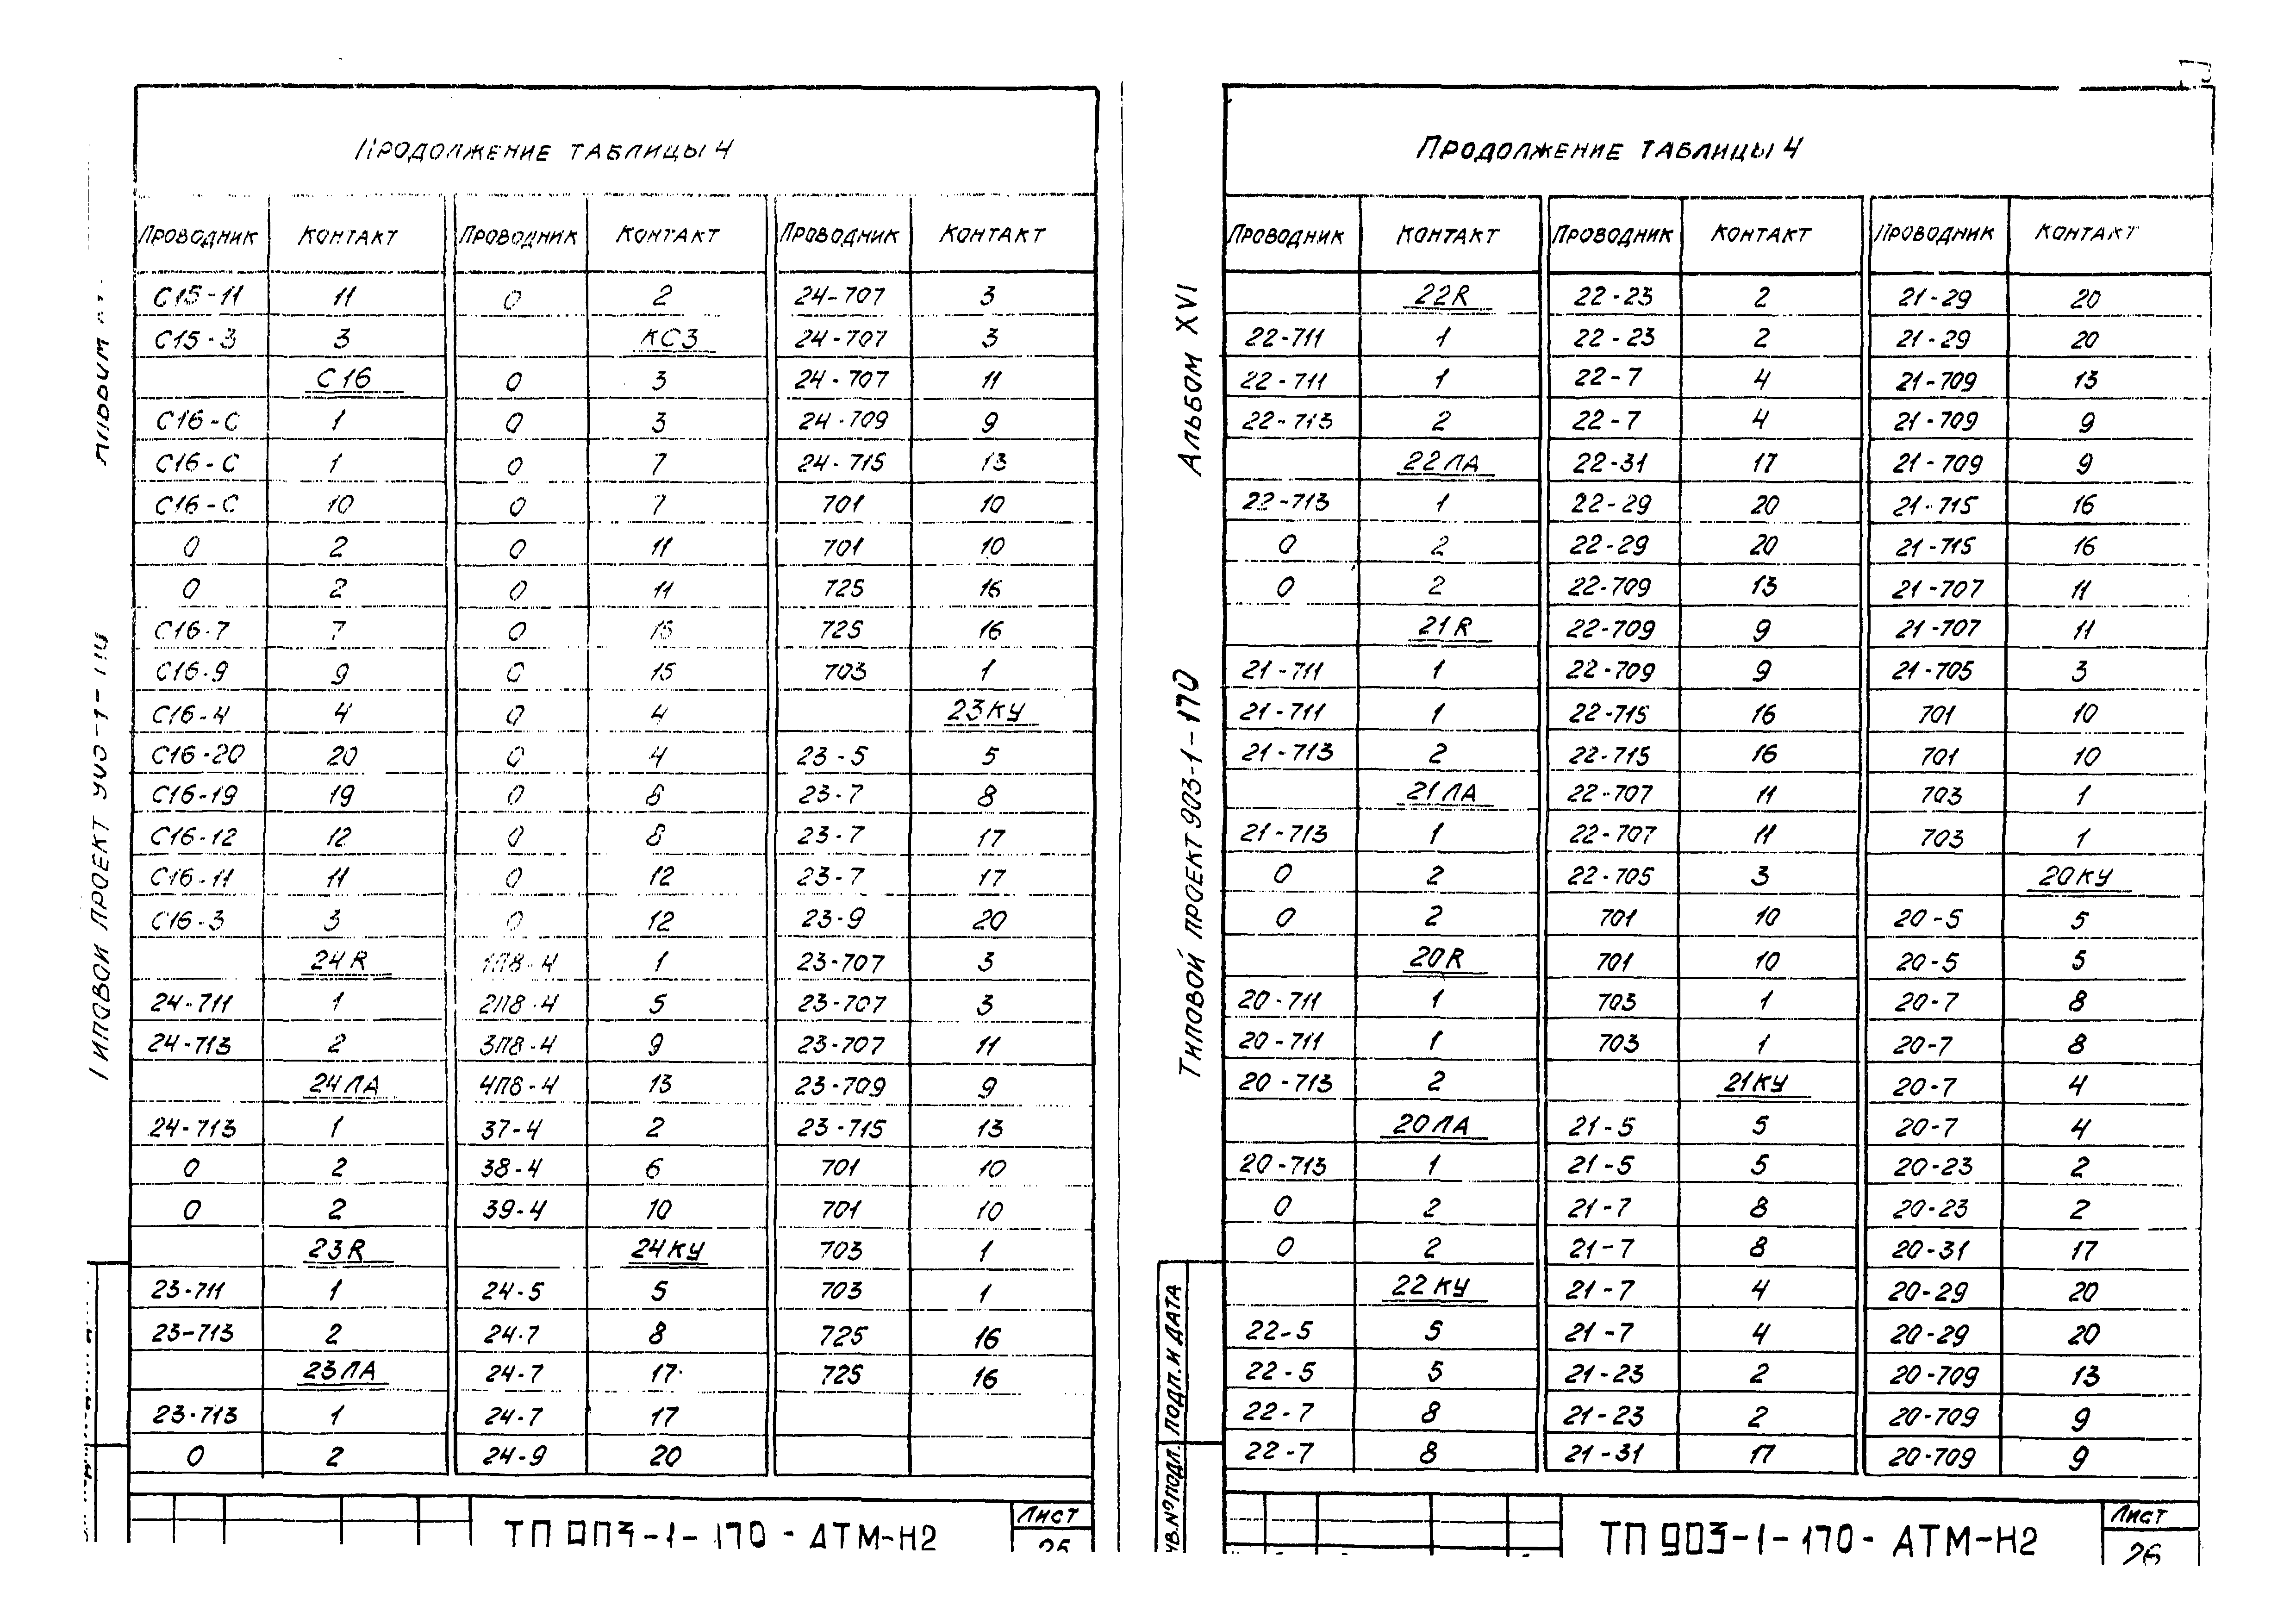 Продолжение таблицы 4
Проводник Контакт Проводник Контакт Проводник Контакт
С15-11 11 0 2 24-707 3
С15-3 3 КС3 24-707 3
С16 0 3 24-707 11
С16-С 1 0 3 24-709 9
С16-С 1 0 7 24-715 13
С16-С 10 0 7 701 10
0 2 0 11 701 10
0 2 0 11 725 16
С16-7 7 0 15 725 16
С16-9 9 0 15 703 1
С16-4 4 0 4 23КУ
С16-20 20 0 4 23-5 5
С16-19 19 0 8 23-7 8
С16-12 12 0 8 23-7 17
С16-11 11 0 12 23-7 17
С16-3 3 0 12 23-9 20
24R 1П8-4 1 23-707 3
24-711 1 2П8-4 5 23-707 3
24-713 2 3П8-4 9 23-707 11
24ЛА 4П8-4 13 23-709 9
24-713 1 37-4 2 23-715 13
0 2 38-4 6 701 10
0 2 39-4 10 701 10
23R 24КУ 703 1
23-711 1 24-5 5 703 1
23-713 2 24-7 8 725 16
23ЛА 24-7 17 725 16
23-713 1 24-7 17
0 2 24-9 20
ТП 903-1-170-АТМ-Н2
Лист
Типовой проект 903-1-170 Альбом XVI
Продолжение таблицы 4
Проводник Контакт Проводник Контакт Проводник Контакт
22R 22-23 2 21-29 20
22-711 1 22-23 2 21-29 20
22-711 1 22-7 4 21-709 13
22-713 2 22-7 4 21-709 9
22ЛА 22-31 17 21-709 9
22-713 1 22-29 20 21-715 16
0 2 22-29 20 21-715 16
0 2 22-709 13 21-707 11
21R 22-709 9 21-707 11
21-711 1 22-709 9 21-705 3
21-711 1 22-715 16 701 10
21-713 2 22-715 16 701 10
21ЛА 22-707 11 703 1
21-713 1 22-707 11 703 1
0 2 22-705 3 20КУ
0 2 701 10 20-5 5
20R 701 10 20-5 5
20-711 1 703 1 20-7 8
20-711 1 703 1 20-7 8
20-713 2 21КУ 20-7 4
20ЛА 21-5 5 20-7 4
20-713 1 21-5 5 20-23 2
0 2 21-7 8 20-23 2
0 2 21-7 8 20-31 17
22КУ 21-7 4 20-29 20
22-5 5 21-7 4 20-29 20
22-5 5 21-23 2 20-709 13
22-7 8 21-23 2 20-709 9
22-7 8 21-31 17 20-709 9
Подп. и дата
ТП 903-1-170-АТМ-Н2
Лист
26